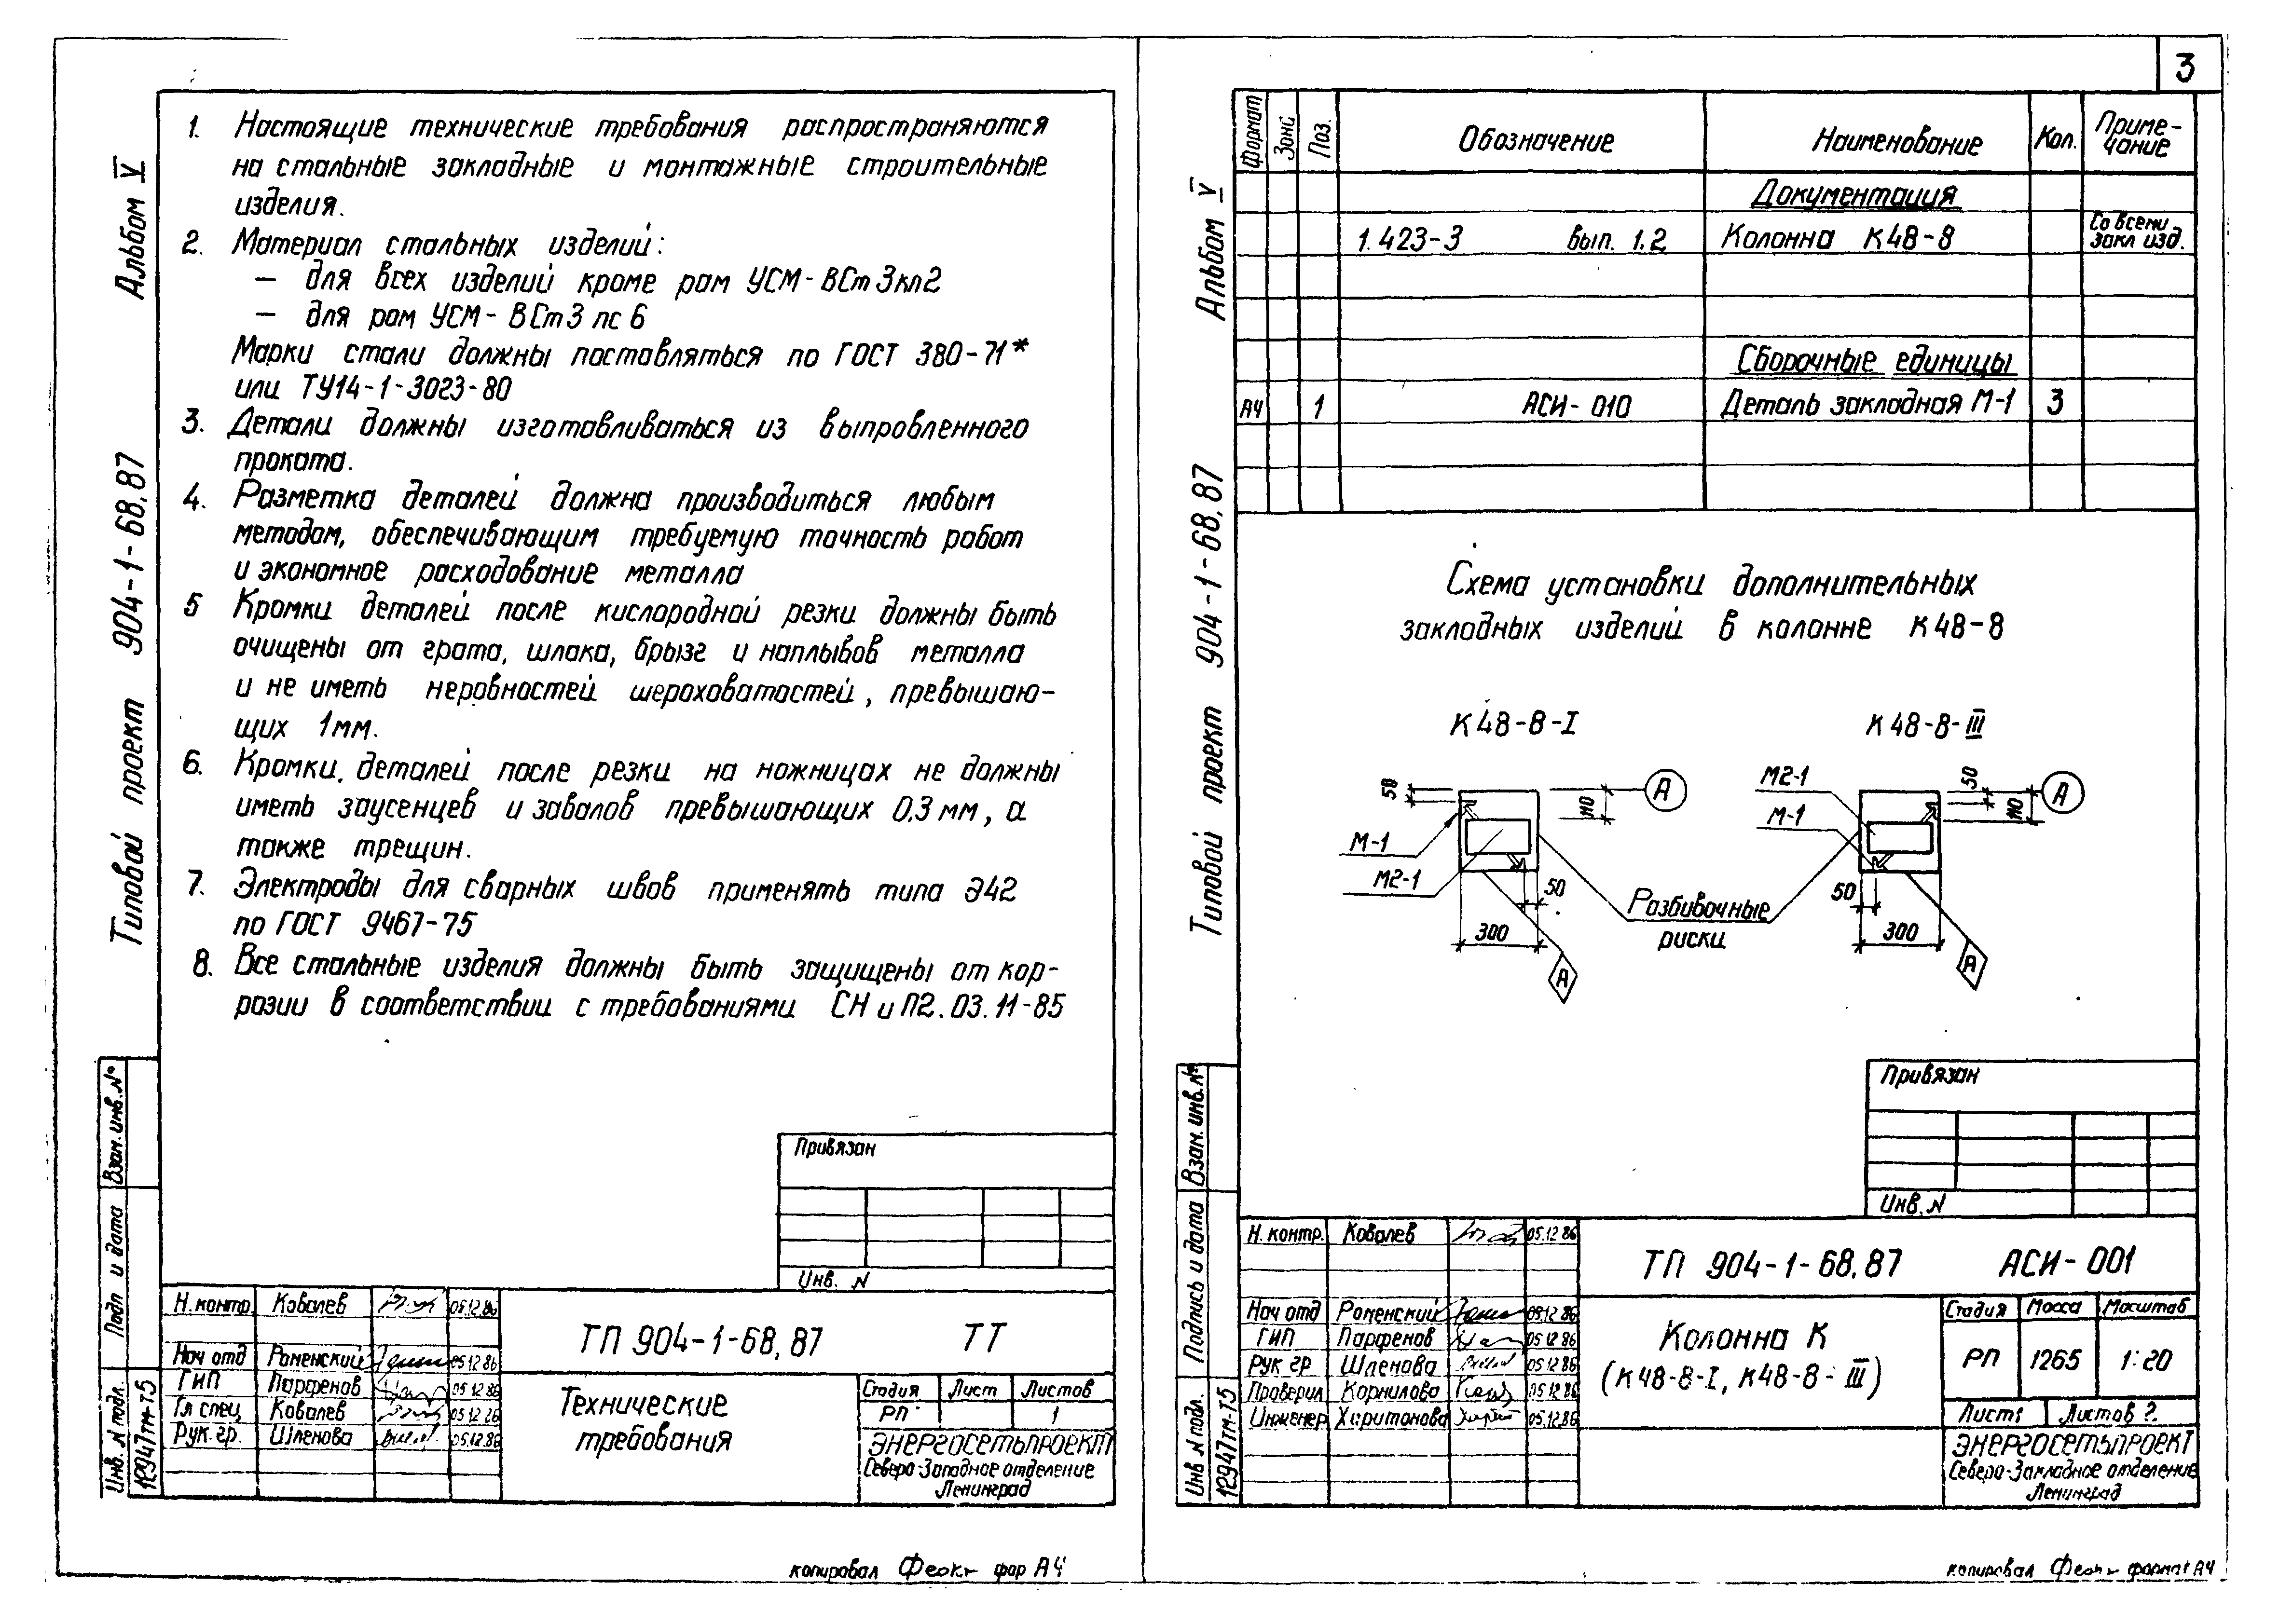 Альбом V
Типовой проект 904-1-68.87
1. Настоящие технические требования распространяются
на стальные закладные и монтажные строительные
изделия.
2. Материал стальных изделий:
— для всех изделий кроме рам УСМ-ВСт3кп2
— для рам УСМ-ВСт3пс6
Марки стали должны поставляться по ГОСТ 380-71*
или ТУ14-1-3023-80
3. Детали должны изготавливаться из выправленного
проката.
4. Разметка деталей должна производиться любым
методом, обеспечивающим требуемую точность работ
и экономное расходование металла
5 Кромки деталей после кислородной резки должны быть
очищены от грата, шлака, брызг и наплывов металла
и не иметь неровностей шероховатостей, превышаю-
щих 1мм.
6. Кромки, деталей после резки на ножницах не должны
иметь заусенцев и завалов превышающих 0.3 мм, а
также трещин.
7. Электроды для сварных швов применять типа Э42
по ГОСТ 9467-75
8. Все стальные изделия должны быть защищены от кор-
розии в соответствии с требованиями СНиП2.03.11-85
Привязан
Инв. N
Взам. инв. №
Подп и дата
Инв. N подл.
12947тм-т5
Н. контр. Ковалев 05.12.86
Нач отд Раменский 05.12.86
ГИП Парфенов 05.12.86
Гл спец Ковалев 05.12.86
Рук. гр. Шленова 05.12.86
ТП 904-1-68.87 ТТ
Технические
требования
Стадия Лист Листов
РП 1
ЭНЕРГОСЕТЬПРОЕКТ
Северо-Западное отделение
Ленинград
копировал фор А4
3
Альбом V
Типовой проект 904-1-68.87
Формат Зона Поз. Обозначение Наименование Кол. Приме-
чание
Документация
1.423-3 вып. 1.2 Колонна К48-8 Со всеми
закл изд.
Сборочные единицы
А4 1 АСИ-010 Деталь закладная М-1 3
Схема установки дополнительных
закладных изделий в колонне К48-8
К48-8-I
К48-8-III
50
110
А
М-1
М2-1
50
300
А
Разбивочные
риски
М2-1
М-1
50
110
А
50
300
А
Привязан
Инв. N
Взам. инв. №
Подпись и дата
Инв N подл.
12947тм-т5
Н. контр. Ковалев 05.12.86
Нач отд Раменский 05.12.86
ГИП Парфенов 05.12.86
Рук гр Шленова 05.12.86
Проверил Корнилова 05.12.86
Инженер Харитонова 05.12.86
ТП 904-1-68.87 АСИ-001
Колонна К
(К48-8-I, К48-8-III)
Стадия Масса Масштаб
РП 1265 1:20
Лист Листов
ЭНЕРГОСЕТЬПРОЕКТ
Северо-Западное отделение
Ленинград
копировал формат А4